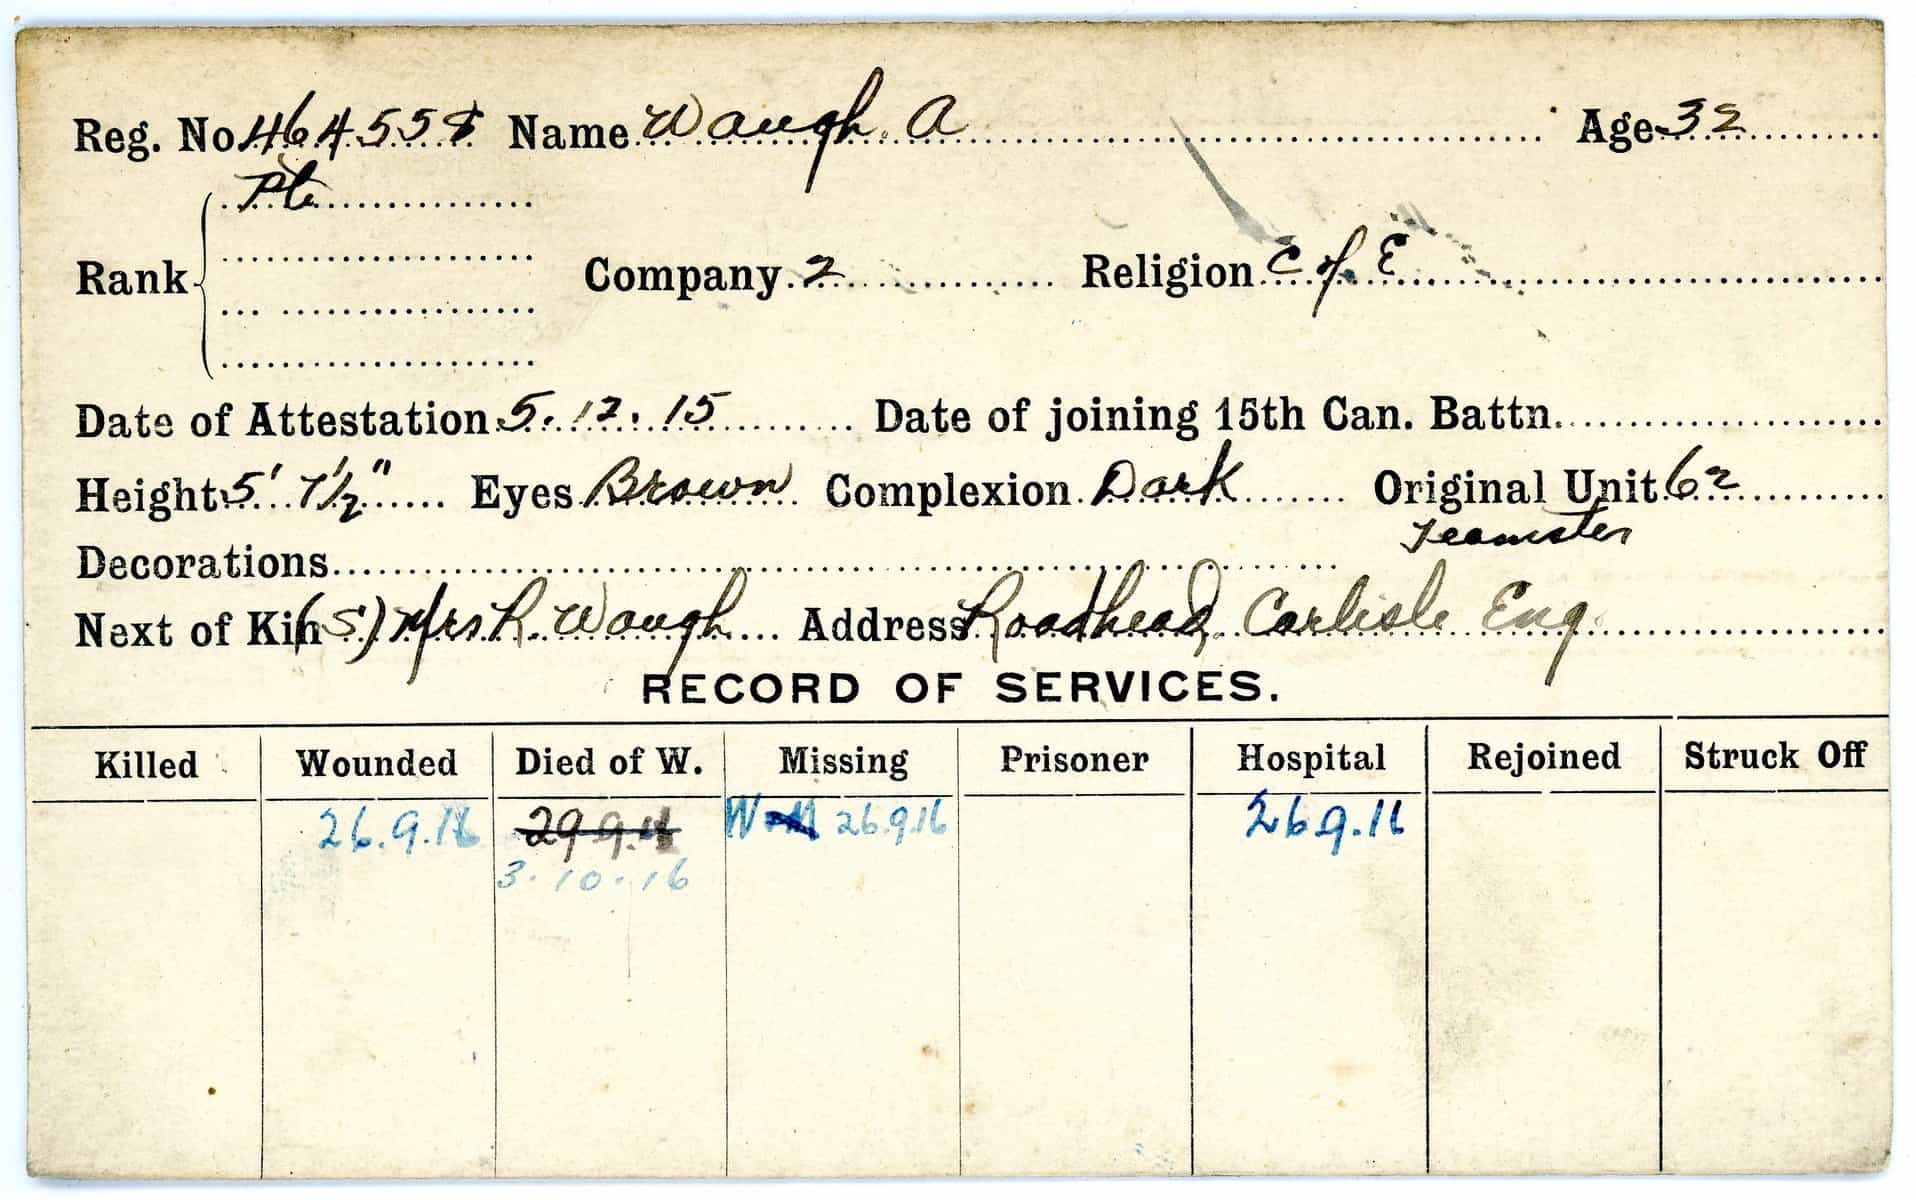 Reg. No. 464558 Name Waugh. A Age 32
Pte
Rank Company 2 Religion C of E
Date of Attestation 5.12.15 Date of joining 15th Can. Battn.
Height 5' 7½" Eyes Brown Complexion Dark Original Unit 62
Teamster
Decorations
Next of Kin (S) Mrs R. Waugh Address Roadhead, Carlisle Eng.
RECORD OF SERVICES.
Killed Wounded Died of W. Missing Prisoner Hospital Rejoined Struck Off
26.9.16 29 9.16 W 26.9.16 26 9.16
3.10.16